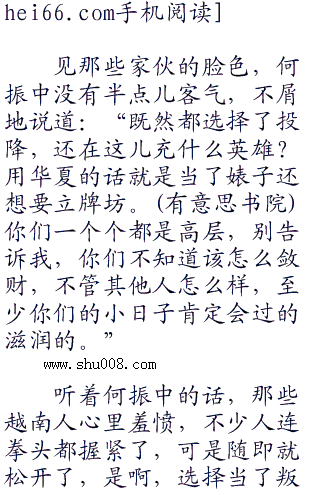 hei66.com手机阅读]
见那些家伙的脸色，何
振中没有半点儿客气，不屑
地说道：“既然都选择了投
降，还在这儿充什么英雄？
用华夏的话就是当了婊子还
想要立牌坊。(有意思书院)
你们一个个都是高层，别告
诉我，你们不知道该怎么敛
财，不管其他人怎么样，至
少你们的小日子肯定会过的
滋润的。”
www.shu008.com
听着何振中的话，那些
越南人心里羞愤，不少人连
拳头都握紧了，可是随即就
松开了，是啊，选择当了叛